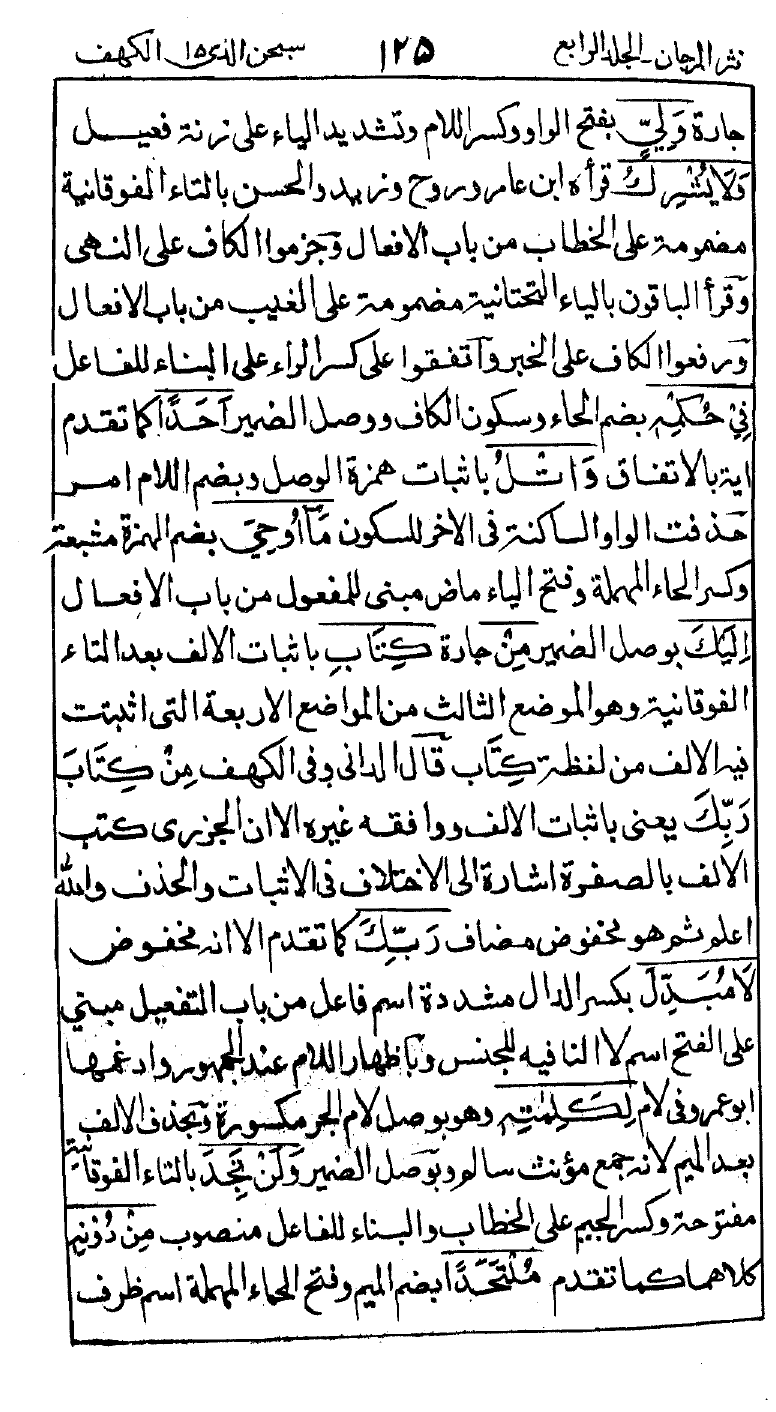 نثر المرجان - الجلد الرابع ١٢٥ سبحن الذی ١٥ الكهف
جارة وَلِيٍّ بفتح الواو وكسر اللام وتشديد الياء على زنة فعيل
وَلَا يُشْرِكُ قرأه ابن عامر وروح وزيد والحسن بالتاء الفوقانية
مضمومة على الخطاب من باب الافعال وجزموا الكاف على النهى
وقرأ الباقون بالياء التحتانية مضمومة على الغيب من باب الافعال
ورفعوا الكاف على الخبر واتفقوا على كسر الراء على البناء للفاعل
فِيْ حُكْمِهٖ بضم الحاء وسكون الكاف ووصل الضمير اَحَدًا كما تقدم
اية بالاتفاق وَاتْلُ باثبات همزة الوصل وبضم اللام امر
حذفت الواو الساكنة فى الاخر للسكون مَآ اُوحِيَ بضم الهمزة مشبعة
وكسر الحاء المهملة وفتح الياء ماض مبنى للمفعول من باب الافعال
اِلَيْكَ بوصل الضمير مِنْ جارة كِتَابِ باثبات الالف بعد التاء
الفوقانية وهو الموضع الثالث من المواضع الاربعة التى اثبتت
فيه الالف من لفظة كِتَّاب قال الدانى وفى الكهف مِنْ كِتَابَ
رَبِّكَ يعنى باثبات الالف ووافقه غيره الا ان الجزرى كتب
الالف بالصفرة اشارة الى الاختلاف فى الاثبات والحذف والله
اعلم ثم هو مخفوض مضاف رَبِّكَ كما تقدم الا انه مخفوض
لَا مُبَدِّلَ بكسر الدال مشددة اسم فاعل من باب التفعيل مبني
على الفتح اسم لا النافيه للجنس وباظهار اللام عند الجمهور وادغمها
ابو عمرو فى لام لِكَلِمٰتِهٖ وهو بوصل لام الجر مكسورة وبحذف الالف
بعد الميم لانه جمع مؤنث سالم وبوصل الضمير وَلَنْ تَجِدَ بالتاء الفوقانية
مفتوحة وكسر الجيم على الخطاب والبناء للفاعل منصوب مِنْ دُوْنِهٖ
كلاهما كما تقدم مُلْتَحَدًا بضم الميم وفتح الحاء المهملة اسم ظرف